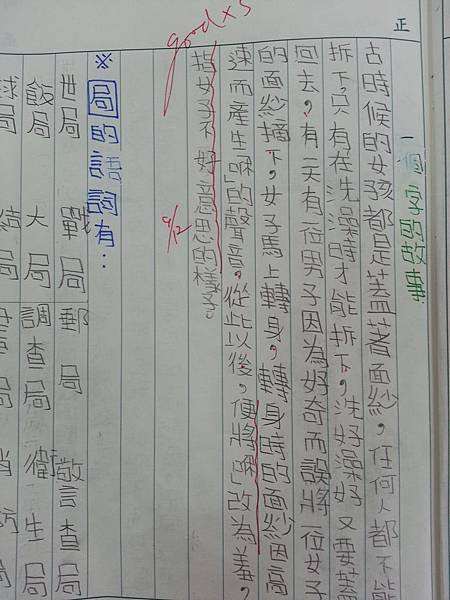 正
一個字的故事
古時候的女孩都是蓋著面紗，任何人都不能
拆下，只有在洗澡時才能拆下，洗好澡又要蓋
回去，有一天有一位男子因為好奇而誤將一位女子
的面紗摘下，女子馬上轉身，轉身時的面紗因高
速而產生「咻」的聲音，從此以後，便將「咻」改為羞，
指女子不好意思的樣子。
good x5
9/12
※局的語詞有：
世局 戰局 郵局 警查局
飯局 大局 調查局 衛生局
結局